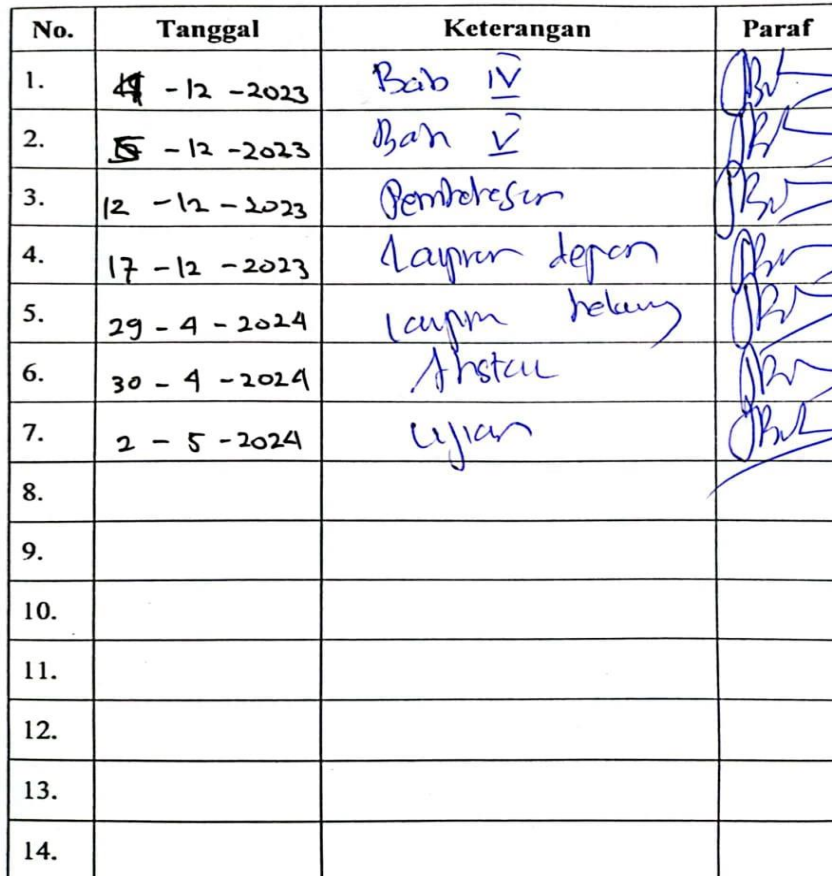 No. Tanggal Keterangan Paraf
1. 4 -12 -2023 Bab IV
2. 5 -12 -2023 Bab V
3. 12 -12 -2023 Pembahasan
4. 17 -12 -2023 Lampiran depan
5. 29 - 4 - 2024 Lampiran belakang
6. 30 - 4 - 2024 Abstrak
7. 2 - 5 - 2024 Ujian
8.
9.
10.
11.
12.
13.
14.